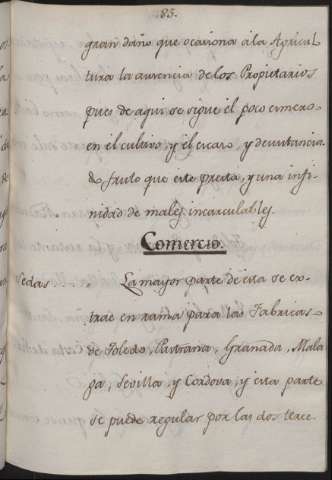 .83.
gran daño que ocasiona á la Agricul
tura la ausencia de los Propietarios
pues de aqui se sigue el poco esmero
en el cultivo, y el escaso, y
de fruto que este presta, y una infi
nidad de males incalculables.
Comercio.
Sedas La mayor parte de esta se ex
trae en rama para las Fabricas
de Toledo, Pastrana, Granada, Mala
ga, Sevilla, y Cordova, y esta parte
se puede regular por las dos terce